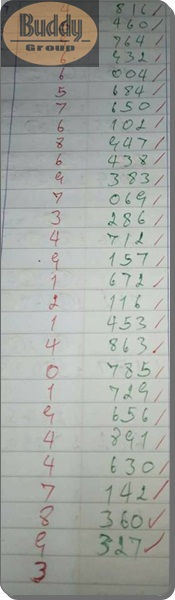 Buddy
Group
816
460
764
6 932
6 004
5 684
7 650
6 102
8 947
6 438
9 383
7 069
3 286
4 712
9 157
1 672
2 116
1 453
4 863
0 785
1 729
9 656
4 891
4 630
7 142
8 360
9 327
3